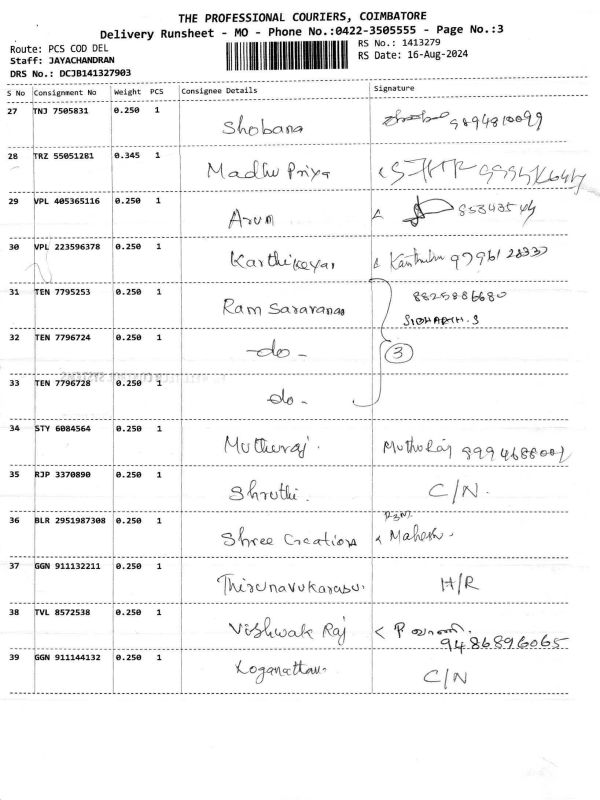 THE PROFESSIONAL COURIERS, COIMBATORE
Delivery Runsheet - MO - Phone No.:0422-3505555 - Page No.:3
Route: PCS COD DEL
RS No.: 1413279
Staff: JAYACHANDRAN
RS Date: 16-Aug-2024
DRS No.: DCJB141327903
S No Consignment No Weight PCS Consignee Details Signature
27 TNJ 7505831 0.250 1 Shobana 9894810099
28 TRZ 55051281 0.345 1 Madhu Priya
29 VPL 405365116 0.250 1 Arun
30 VPL 223596378 0.250 1 Karthikeyan 97961 28337
31 TEN 7795253 0.250 1 Ram Saravanan 8825886680
SIDHARTH.S
32 TEN 7796724 0.250 1 -do- 3
33 TEN 7796728 0.250 1 do-
34 STY 6084564 0.250 1 Muthuraj. Muthuraj
35 RJP 3370890 0.250 1 Shruthi. C/N.
36 BLR 2951987308 0.250 1 Shree Creations Mahesh.
37 GGN 911132211 0.250 1 Thirunavukarasu. H/R
38 TVL 8572538 0.250 1 Vishwak Raj P வாணி.
9486896065
39 GGN 911144132 0.250 1 Loganathan C/N